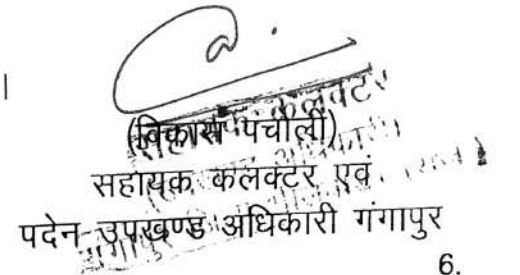 (विकास पंचोली)
सहायक कलक्टर एवं
पदेन उपखण्ड अधिकारी गंगापुर
6.